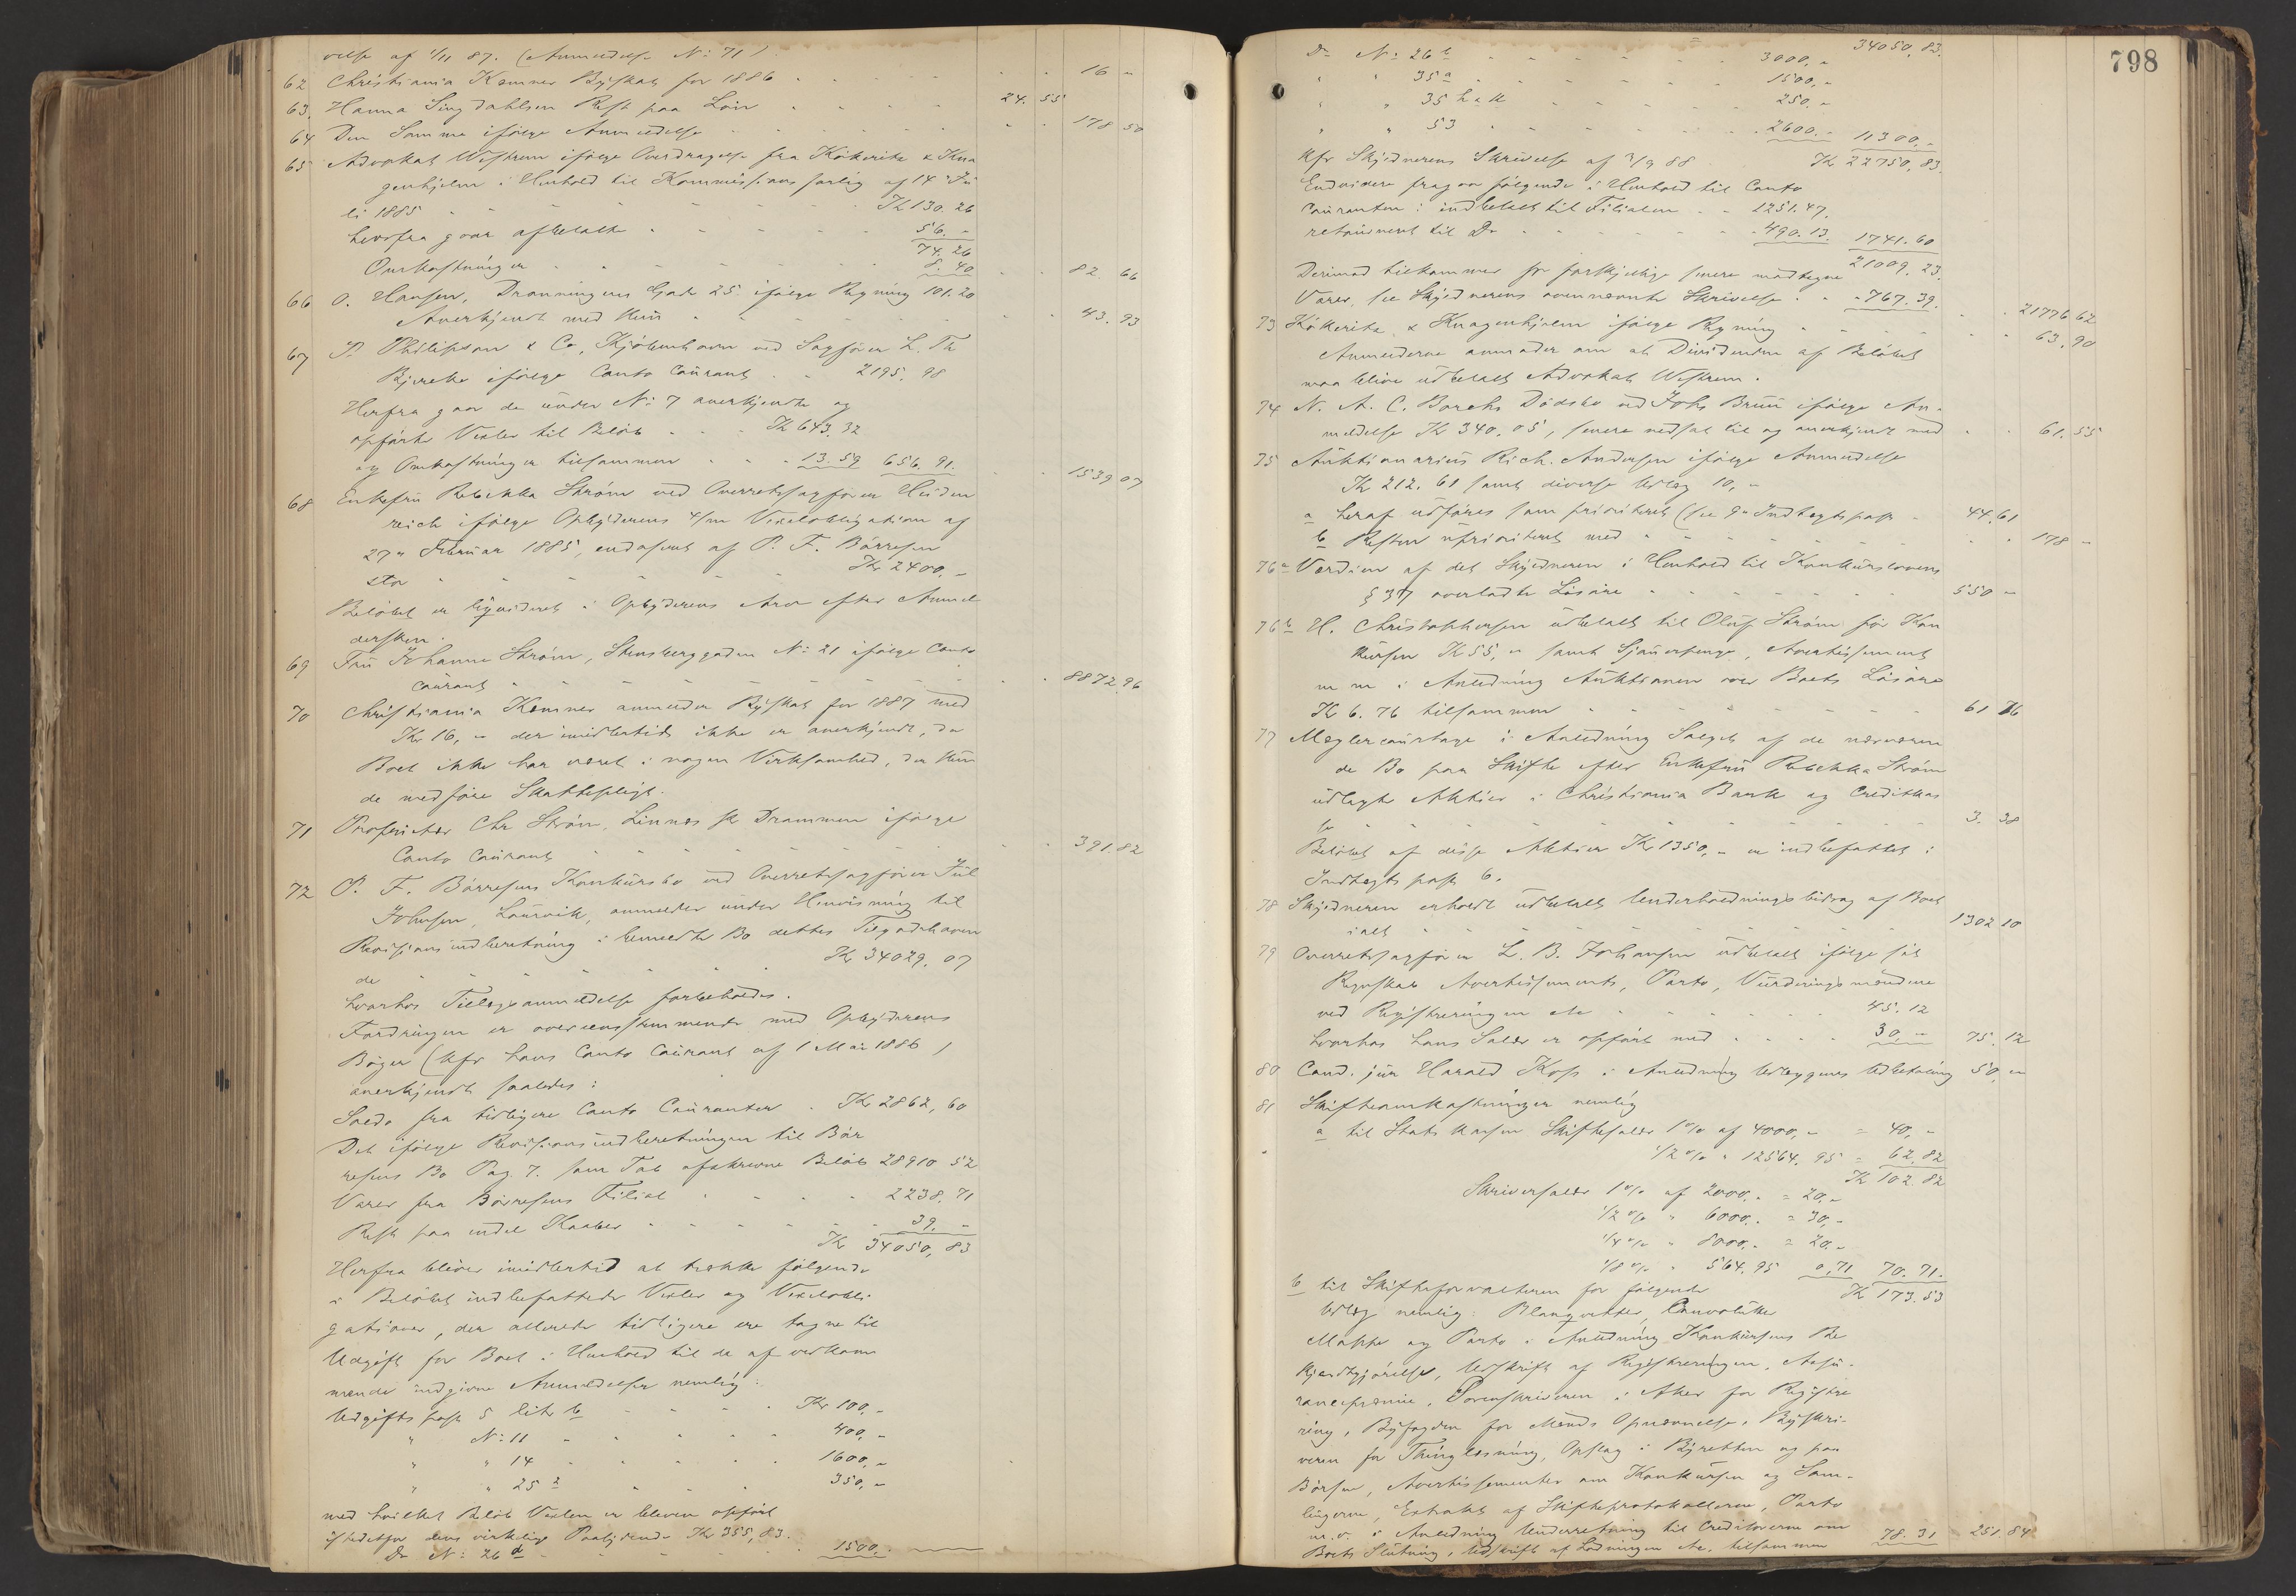 velse af 1/11 87. (Anmeldelse No: 71)
62 Christiania Kemner Byskat for 1886 16 "
63. Hanna Sing Dahlsen Rest paa Løn 24. 55
64 Den Samme ifølge Anmeldelse 178 50
65 Advokat Westrum ifølge Overdragelse fra Kökeritz & Kna
genhjelm i Henhold til Kommissionsforlig af 14de Ju
li 1885 Kr 130. 26
herfra gaar afbetalt 56. "
74. 26
Omkostninger 8. 40 82. 66
66 O. Hansen, Dronningens Gade 25 ifølge Regning 101. 20
Anerkjendt med kun 43. 93
67 P. Philipson & Co, Kjøbenhavn ved Sagfører L. Th
Bjerke ifølge Conto Courant 2195. 98
Herfra gaar de under No: 7 anerkjendte og
opførte Vexler til Beløb Kr 643. 32
og Omkostninger tilsammen 13. 59 656. 91. 1539 07
68 Enkefru Rebekka Strøm ved Overretssagfører Heiden
reich ifølge Opbyderens 4/m Vexelobligation af
27de Februar 1885, endosseret af P. F. Børresen
stor Kr 2400, "
Beløbet er liqvideret i Opbyderens Arv efter Anmel
dersken.
69 Fru Johanne Strøm, Stensberggaden No: 21 ifølge Conto
courant 8872. 96
70 Christiania Kemner anmelder Byskat for 1887 med
Kr 16, " der imidlertid ikke er anerkjendt, da
Boet ikke har været i nogen Virksomhed, der kun
de medføre Skattepligt.
71 Proprietær Chr Strøm, Linnes pr Drammen ifølge
Conto Courant 391. 82
72 P. F. Børresens Konkursbo ved Overretssagfører Jul
Johnsen, Laurvik, anmelder under Henvisning til
Revisionsindberetning i bemeldte Bo dettes Tilgodehaven
de Kr 34029. 07
hvorhos Tillægsanmeldelse forbeholdes.
Fordringen er overensstemmende med Opbyderens
Bøger (kfr hans Conto Courant af 1 Mai 1886)
anerkjendt saaledes:
Saldo fra tidligere Conto Couranter Kr 2862, 60
Det ifølge Revisionsindberetningen til Bør
resens Bo Pag. 7. som Tab afskrevne Beløb 28910 52
Varer fra Børresens Filial 2238. 71
Rest paa endel Kaaber 39. "
Kr 34050, 83
Herfra bliver imidlertid at trække følgende
i Beløbet indbefattede Vexler og Vexelobli
gationer, der allerede tidligere ere tagne til
Udgift for Boet i Henhold til de af vedkom
mende indgivne Anmeldelser nemlig:
Udgifts post 5 litr b Kr 100, "
" No: 11 400, "
" " 14 1600, "
" " 25 2 350, "
med hvilket Beløb Vexlen er bleven opført
istedetfor dens virkelige Paalydende Kr 355, 83.
Do No: 26 d 1500. "
798
34050. 83.
Do No: 26 b 3000, "
" " 35 a 1500, "
" " 35 h & k 250. "
" " 53 2600. " 11300, "
kfr Skyldnerens Skrivelse af 3/9 88 Kr 22750, 83.
Endvidere fragaar følgende i Henhold til Conto
Couranten: indbetalt til Filialen 1251. 47.
retourneret til Do 490. 13. 1741. 60
21009. 23.
Derimod tilkommer for forskjellige senere modtagne
Varer, se Skyldnerens ovennævnte Skrivelse 767. 39. 21776 62
73 Kökeritz & Knagenhjelm ifølge Regning 63. 90
Anmelderne anmoder om at Dividenden af Beløbet
maa blive udbetalt Advokat Westrum.
74 N. A. C. Borchs Dødsbo ved Johs Bruu ifølge An-
meldelse Kr 340. 05, senere nedsat til og anerkjendt med 61. 55
75 Auktionarius Rich. Andersen ifølge Anmeldelse
Kr 212. 61 samt diverse Udlæg 10, "
a heraf udføres som prioriteret (se 9de Indtægtspost 44. 61
b Resten uprioriteret med 178 "
76 a Værdien af det Skyldneren i Henhold til Konkurslovens
§ 37 overladte Løsøre 550 "
76 b H. Christophersen udbetalt til Oluf Strøm for Kon
kursen Kr 55, " samt Sjauerpenge, Avertissement
m m i Anledning Auktionen over Boets Løsøre
Kr 6. 76 tilsammen 61 76
77 Mæglercourtage i Anledning Salget af de nærværen
de Bo paa Skifte efter Enkefru Rebekka Strøm
udlagte Aktier i Christiania Bank og Creditkas
se 3. 38
Beløbet af disse Aktier Kr 1350, " er indbefattet i
Indtægts post 6.
78 Skyldneren erholdt udbetalt Underholdningsbidrag af Boet
ialt 1302 10
79 Overretssagfører L. B. Johansen udbetalt ifølge sit
Regnskab Avertissements, Porto, Vurderingsmændene
ved Registreringen etc 45. 12
hvorhos hans Salær er opført med 30, " 75. 12
80 Cand. jur Harald Koss i Anledning Udlæggenes Udbetaling 50, "
81 Skifteomkostninger nemlig
a til Stats Kassen Skiftesalær 1 % af 4000, " = 40, "
1/2 % " 12564. 95 = 62. 82
Kr 102. 82
Skriversalær 1 % af 2000. " = 20, "
1/2 % " 6000. " = 30, "
1/4 % " 8000. " = 20. "
1/8 % " 564. 95 0, 71 70. 71.
Kr 173. 53
b til Skifteforvalteren for følgende
Udlæg nemlig: Blanqvetter, Convolutter
Mappe og Porto i Anledning Konkursens Be
kjendtgjørelse, Udskrift af Registreringen, Assu-
rancepræmie, Sorenskriveren i Aker for Registre
ring, Byfogden for Mænds Opnævnelse, Byskri-
veren for Thinglæsning, Opslag i Byretten og paa
Børsen, Avertissementer om Konkursen og Sam-
lingerne, Extrakt af Skifteprotokollerne, Porto
m. v. i Anledning Underretning til Creditorerne om
Boets Slutning, Udskrift af Lodningen etc. tilsammen 78. 31 251. 84